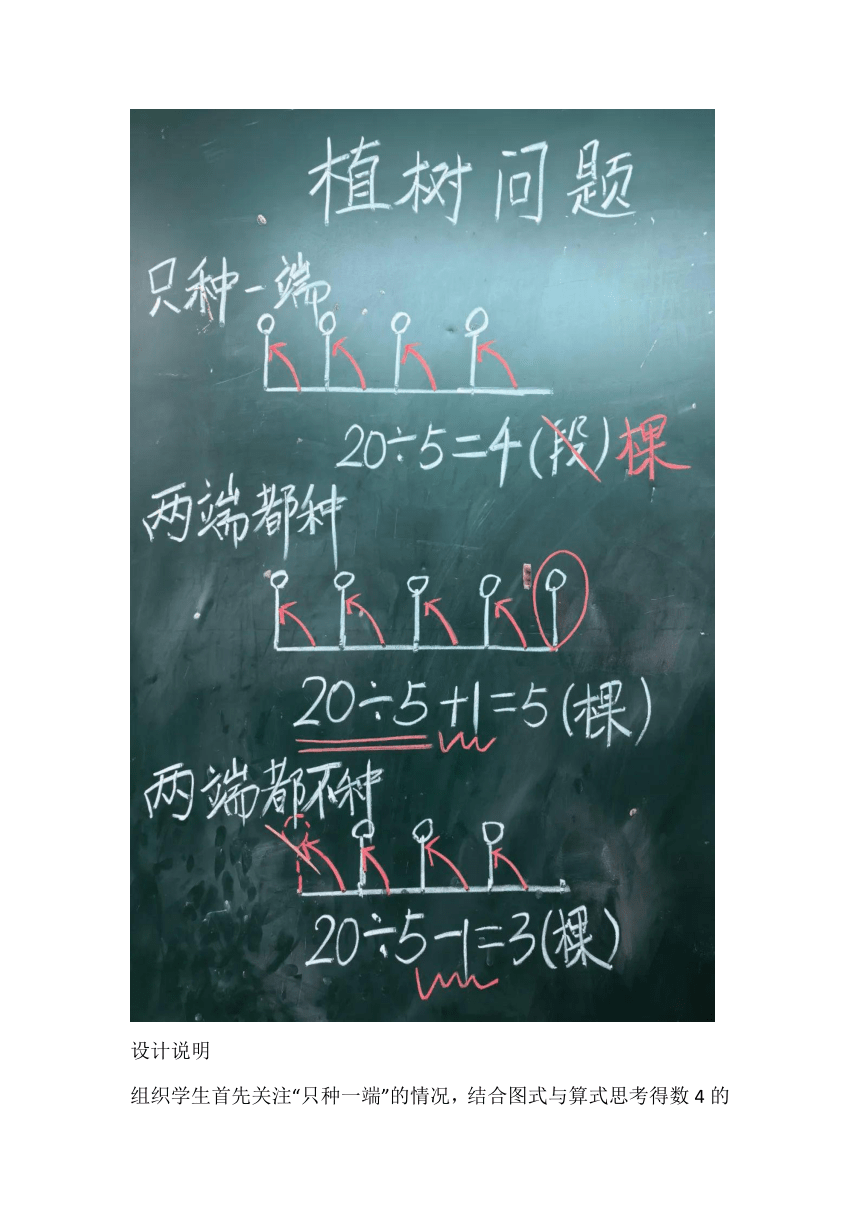 植树问题
只种一端
20÷5=4(段)棵
两端都种
20÷5+1=5(棵)
两端都不种
20÷5-1=3(棵)
设计说明
组织学生首先关注“只种一端”的情况，结合图式与算式思考得数 4 的